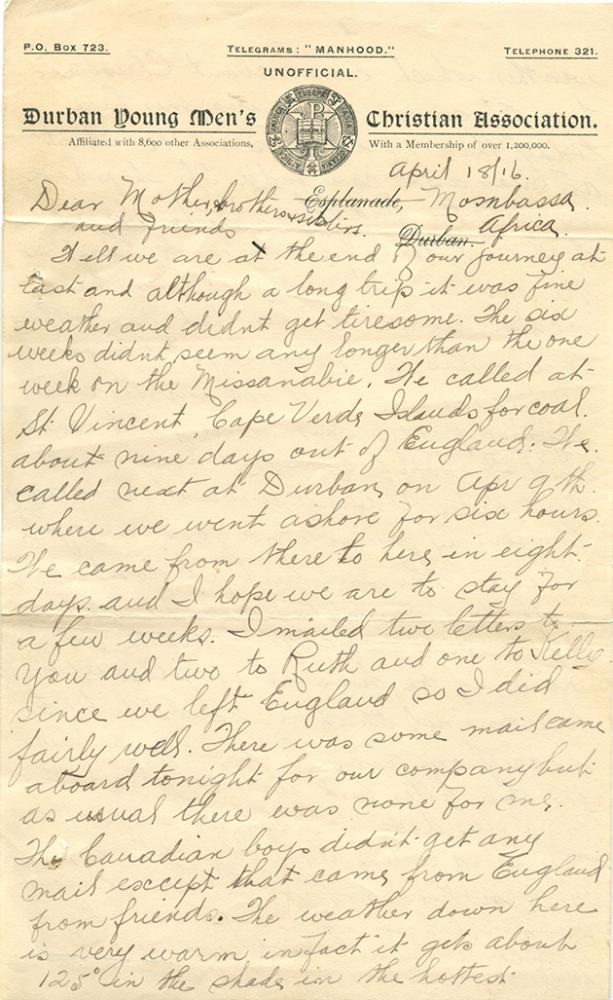 P.O. Box 723.
Telegrams: "MANHOOD."
Telephone 321.
UNOFFICIAL.
Durban Young Men's Christian Association.
Affiliated with 8,600 other Associations, With a Membership of over 1,200,000.
April 18/16.
Dear Mother, brothers & sisters. Esplanade, Mombassa.
and Friends Durban. Africa.
Well we are at the end of our journey at
last and although a long trip it was fine
weather and didnt get tiresome. The six
weeks didnt seem any longer than the one
week on the Missanabie. We called at
St Vincent, Cape Verde Islands for coal.
about nine days out of England. We
called next at Durban, on Apr 9th.
where we went ashore for six hours.
We came from there to here in eight
days. and I hope we are to stay for
a few weeks. I mailed two letters to
you and two to Ruth and one to Kelly
since we left England so I did
fairly well. There was some mail came
aboard tonight for our company but
as usual there was none for me.
The Canadian boys didn't get any
mail except that came from England
from friends. The weather down here
is very warm in fact it gets about
125° in the shade in the hottest